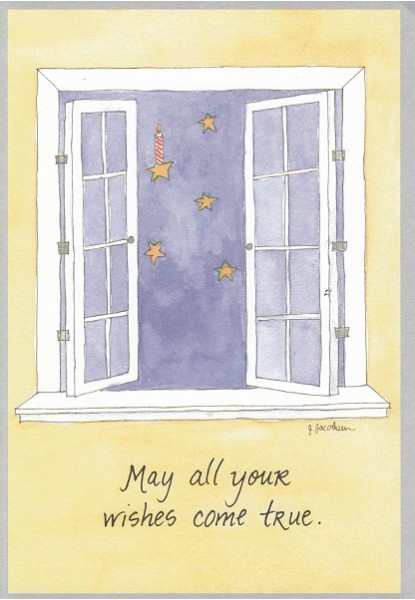 J. Jacobsen
May all your
wishes come true.